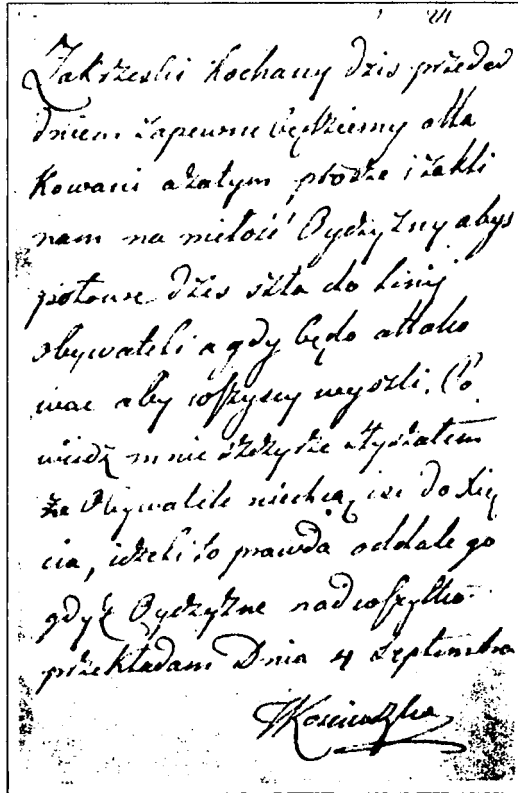 24
Zakrzeski kochany dzis przede
dniem zapewne będziemy atta
kowani azatym proszę i zakli
nam na miłość Oyczyzny abys
połowe dzis szła do linij
obywateli a gdy będo attako
wac aby wszyscy wyszli. Po
wiedz mnie szczyrze słyszałem
że Obywatele niechcą isc do Xię
cia, jeżeli to prawda oddale go
gdyż Oyczyzne nad wszystko
przekładam Dnia 4 Septembra
TKosciuszko